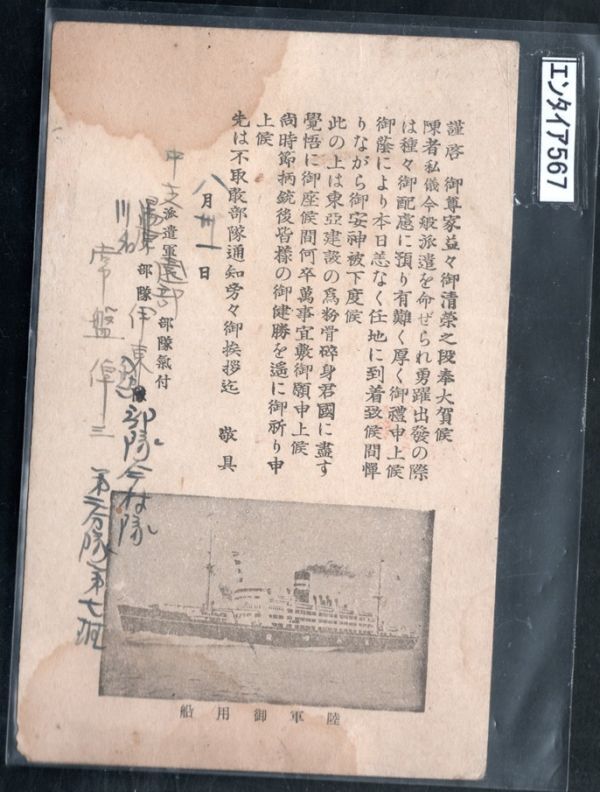 エンタイア567
謹啓 御尊家益々御清榮之段奉大賀候
陳者私儀今般派遣を命ぜられ勇躍出發の際
は種々御配慮に預り有難く厚く御禮申上候
御蔭により本日恙なく任地に到着致候間憚
りながら御安神被下度候
此の上は東亞建設の爲粉骨碎身君國に盡す
覺悟に御座候間何卒萬事宜敷御願申上候
尚時節柄銃後皆様の御健勝を遙に御祈り申
上候
先は不取敢部隊通知旁々御挨拶迄 敬具
八月卅一日
中支派遣軍園部部隊氣付
部隊伊東部隊今村隊
常盤 三 第二分隊第七班
陸軍御用船